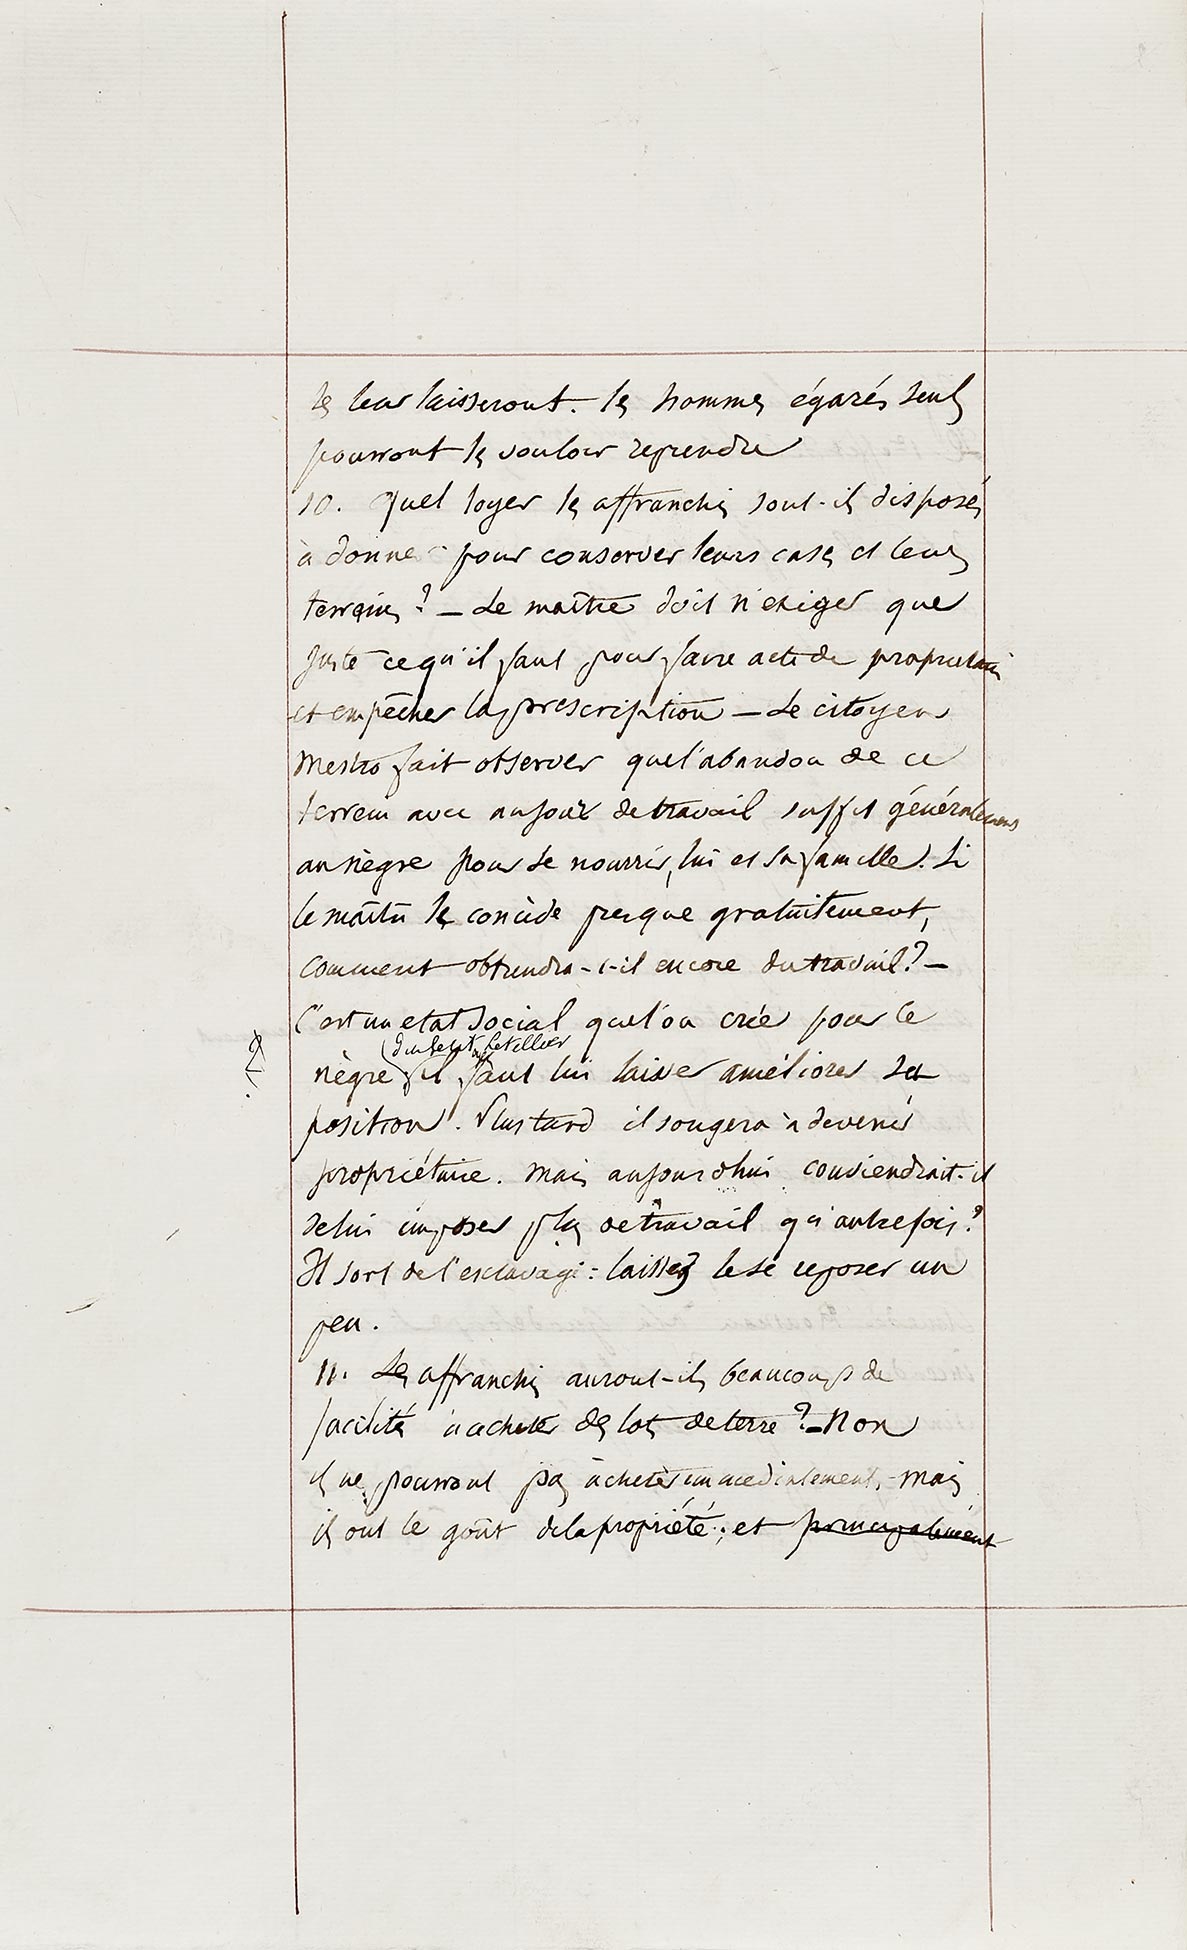 les leur laisseront. les hommes égarés seuls
pourront les vouloir reprendre
10. Quel loyer les affranchis sont-ils disposés
à donner pour conserver leurs cases et leurs
terrains ? — Le maître doit n'exiger que
juste ce qu'il faut pour faire acte de propriétaire
et empêcher la prescription — Le citoyen
Mestro fait observer que l'abandon de ce
terrein avec un jour de travail suffit généralement
au nègre pour se nourrir, lui et sa famille. Si
le maître les concède presque gratuitement,
comment obtiendra-t-il encore du travail ? —
C'est un etat social que l'on crée pour le
dit le cit. Letellier
nègre il faut lui laisser améliorer sa
position. Plus tard il songera à devenir
propriétaire. Mais aujourdhui conviendrait-il
de lui imposer plus de travail qu'autrefois ?
Il sort de l'esclavage : laissez le se reposer un
peu.
11. Les affranchis auront-ils beaucoup de
facilité à acheter des lots de terre ? — Non
ils ne pourront pas acheter immédiatement, mais
ils ont le goût de la propriété ; et principalement